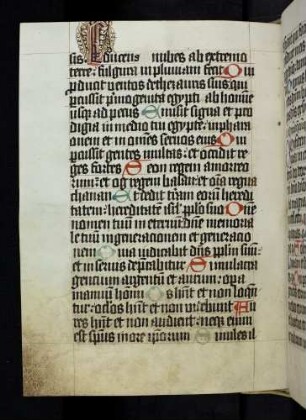 sis. Educens nubes ab extremo
terre: fulgura in pluuiam fecit. Qui
pducit ventos de thezauris suis: qui
pcussit pmogenita egypti ab homine
usqȝ ad pecus. Emisit signa et pro
digia in medio tui egypte: in pharа
onem et in omnes seruos eius. Qui
pcussit gentes multas: et occidit re
ges fortes. Seon regem amorreo
rum: et og regem basan: et omnia regna
chanaan. Et dedit terram eorum heredi
tatem: hereditatē isrl pplo suo. Dne
nomen tuum in eternum: dne memoria
le tuū in generacionem et generacio
nem. Quia iudicabit dns pplm suū:
et in seruis suis depcabitur. Simulacra
gencium argentū et aurum: opa
manuum hominū. Os hnt et non loquētur:
oculos hnt et non videbunt. Au
res hnt et non audient: neqȝ enim
est spus in ore ipsorum. Similes il